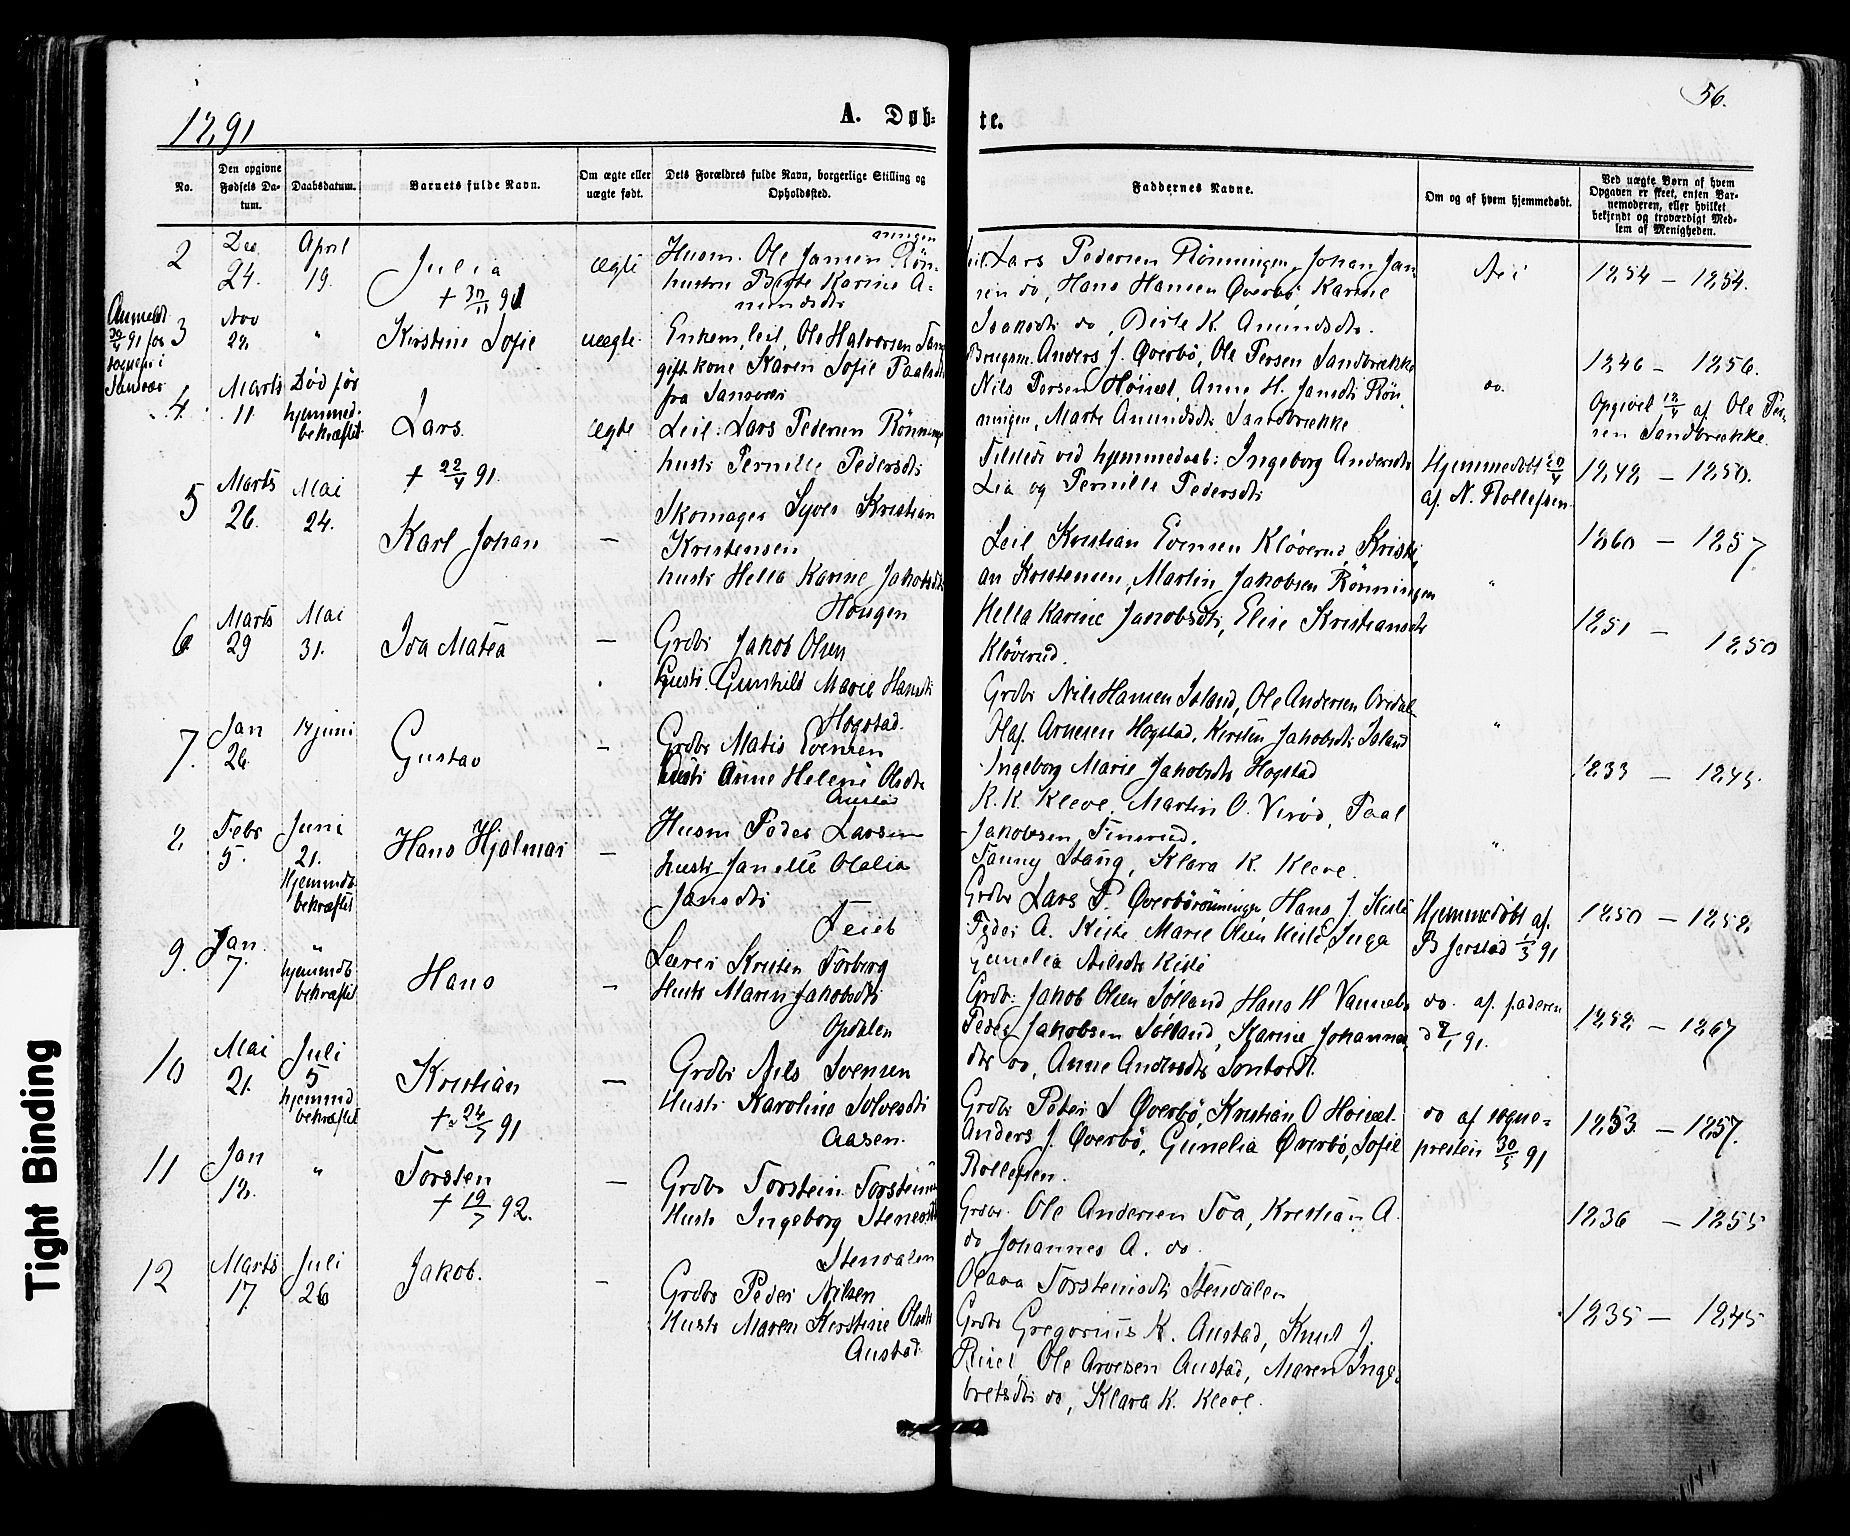 56.
1891
A. Døb-
te.
No.
Den opgivne Fødsels Da-
tum.
Daabsdatum.
Barnets fulde Navn.
Om ægte eller uægte født.
Dets Forældres fulde Navn, borgerlige Stilling og Opholdssted.
Faddernes Navne.
Om og af hvem hjemmedøbt.
Ved uægte Børn af hvem
Opgaven er skeet, enten Bar-
nemoderen, eller hvilket
bekjendt og troværdigt Med-
lem af Menigheden.
2
Dec
24.
April
19.
Julia
ægte
Husm. Ole Jansen Røn-
ningen
hustru Birte Karine A-
mundsdtr
Leil. Lars Pedersen Rønningen, Johan Jan
sen do, Hans Hansen Øverbø Karine
Isaksdtr do, Birte K. Amundsdtr.
Nei
1854 – 1854.
Anmeldt
3
Nov
22.
"
Kirstine Sofie
uægte
Enkem, leil, Ole Halvorsen
gift kone Karen Sofie Paalsdtr
fra Sansvær
Brugsm. Anders J. Øverbø, Ole Persen Sandbrække
Nils Persen Høivet, Anne H. Jansdtr Røn
ningen, Marte Amundsdtr Sandbrække
do.
1846 – 1856.
Opgivet 12/4 af Ole Per-
sen Sandbrække
4.
Marts
11.
Død før
hjemmed.
bekræftet
Lars.
+ 22/4 91.
ægte
Leil. Lars Pedersen Rønningen
hustr Pernille Pedersdtr
Tilstede ved hjemmedaab: Ingeborg Andersdtr
Lia og Pernille Pedersdtr
Hjemmedøbt 20/4
af N. Rollefsen
1842 – 1850.
5
Marts
26.
Mai
24.
Karl Johan
–
Skomager Syver Kristian
Kristensen
hustr Hella Karine Jakobsdtr
Haugen
Leil Kristian Evensen Kløverud, Kristi
an Kristensen, Martin Jakobsen Rønningen
Hella Karine Jakobsdtr, Elise Kristiansdtr
Kløverud.
"
1860 – 1857.
6
Marts
29
Mai
31.
Ida Matea
–
Grdbr Jakob Olsen
hustr. Gunhild Marie Hansdtr
Hogstad.
Grdbr Nils Hansen Island, Ole Andersen
Olaf Arnesen Hogstad, Kirsten Jakobsdtr Island
Ingeborg Marie Jakobsdtr Hogstad
"
1851 – 1850
7.
Jan
26.
14 juni
Gustav
–
Grdbr Matis Evensen
hustr Anne Helene Olsdtr
Austad
K. K. Kleve, Martin O. Virød, Paal
Jakobsen, Finerud.
Fanny Stang, Klara K. Kleve.
"
1833 – 1845.
8
Febr
5.
Juni
21.
Hjemmdb
bekræftet
Hans Hjalmar
–
Husm Peder Larsen
hustr Janette Olalia
Jansdtr
Grdbr Lars P. Øverbørønningen, Hans J. Kiste
Peder A. Kiste Marie Olsen Kiste, Inga
Gunelia Nilsdtr Kiste
Hjemmedøbt af
B Jerstad 1/3 91
1850 – 1852.
9.
Jan.
7.
"
hjemmdb
bekræftet
Hans
–
Lærer Kristen Torberg
Hustr Maren Jakobsdtr
Opdalen
Grdbr: Jakob Olsen Sølland, Hans H
Peder Jakobsen Sølland, Karine Johannes
dtr do, Anne Andersdtr
do. af faderen
1852 – 1867
10
Mai
21.
Juli
5
hjemmd
bekræftet
Kristian
+ 24/7 91
–
Grdbr Nils Svensen
Hustr Karoline Solvesdtr
Aasen.
Grdbr Peder S Øverbø, Kristian O Høivet.
Anders J. Øverbø, Gunelia Øverbø, Sofie
Rollefsen.
do af sogne-
presten 30/5 91
1853 – 1857.
11
Jan
12.
"
Torsten
+ 19/7 92.
–
Grdbr Torstein Torsteinsen
Hustr Ingeborg Stenersdtr
Stendalen
Grdbr. Ole Andersen Foa, Kristian A.
do Johannes A. do.
Olava Torsteinsdtr Stendalen
1836 – 1855
12
Marts
17.
Juli
26
Jakob.
–
Grdbr Peder Nilsen
Hustr Maren Kirstine Olsdtr
Austad.
Grdbr Gregorius K. Austad, Knut J.
Ruiel, Ole Arvesen Austad, Maren Inge-
bretsdtr do, Klara K. Kleve.
1835 – 1845
Tight Binding